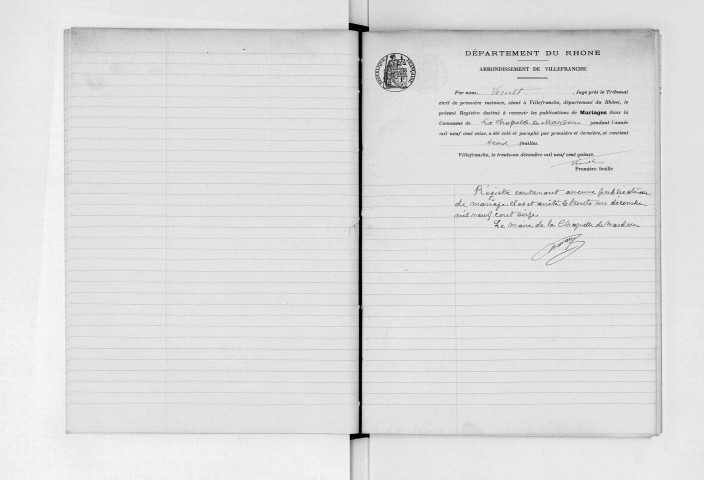 DÉPARTEMENT DU RHONE
ARRONDISSEMENT DE VILLEFRANCHE
Par nous, , Juge près le Tribunal
civil de première instance, séant à Villefranche, département du Rhône, le
présent Registre destiné à recevoir les publications de Mariages dans la
Commune de La Chapelle de Mardore pendant l'année
mil neuf cent seize, a été coté et paraphé par première et dernière, et contient
feuilles.
Villefranche, le trente-un décembre mil neuf cent quinze.
Première feuille
Régistre contenant aucune publication
de mariage clos et arrêté le trente un décembre
mil neuf cent seize
Le Maire de la Chapelle de Mardore